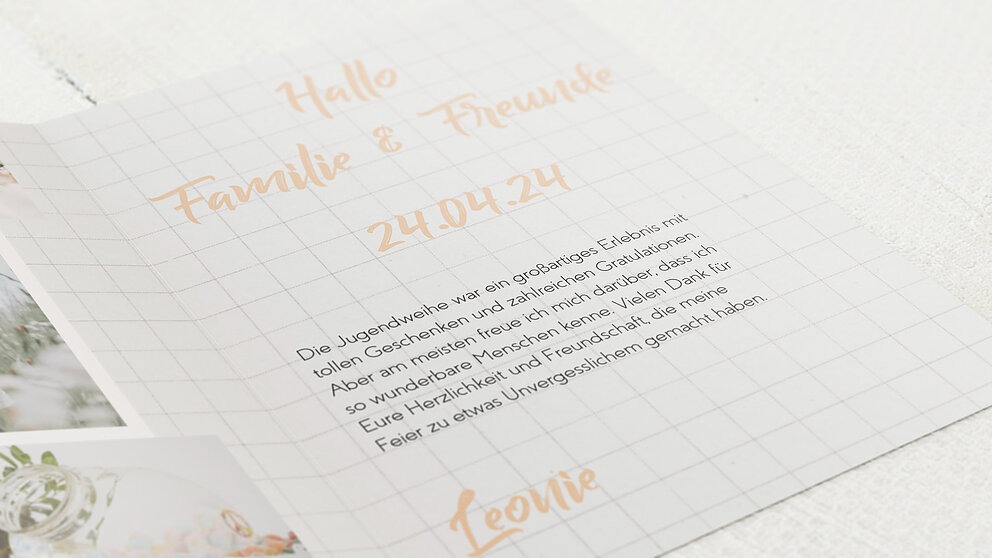 Hallo
Familie & Freunde
24.04.24
Die Jugendweihe war ein großartiges Erlebnis mit
tollen Geschenken und zahlreichen Gratulationen.
Aber am meisten freue ich mich darüber, dass ich
so wunderbare Menschen kenne. Vielen Dank für
Eure Herzlichkeit und Freundschaft, die meine
Feier zu etwas Unvergesslichem gemacht haben.
Leonie